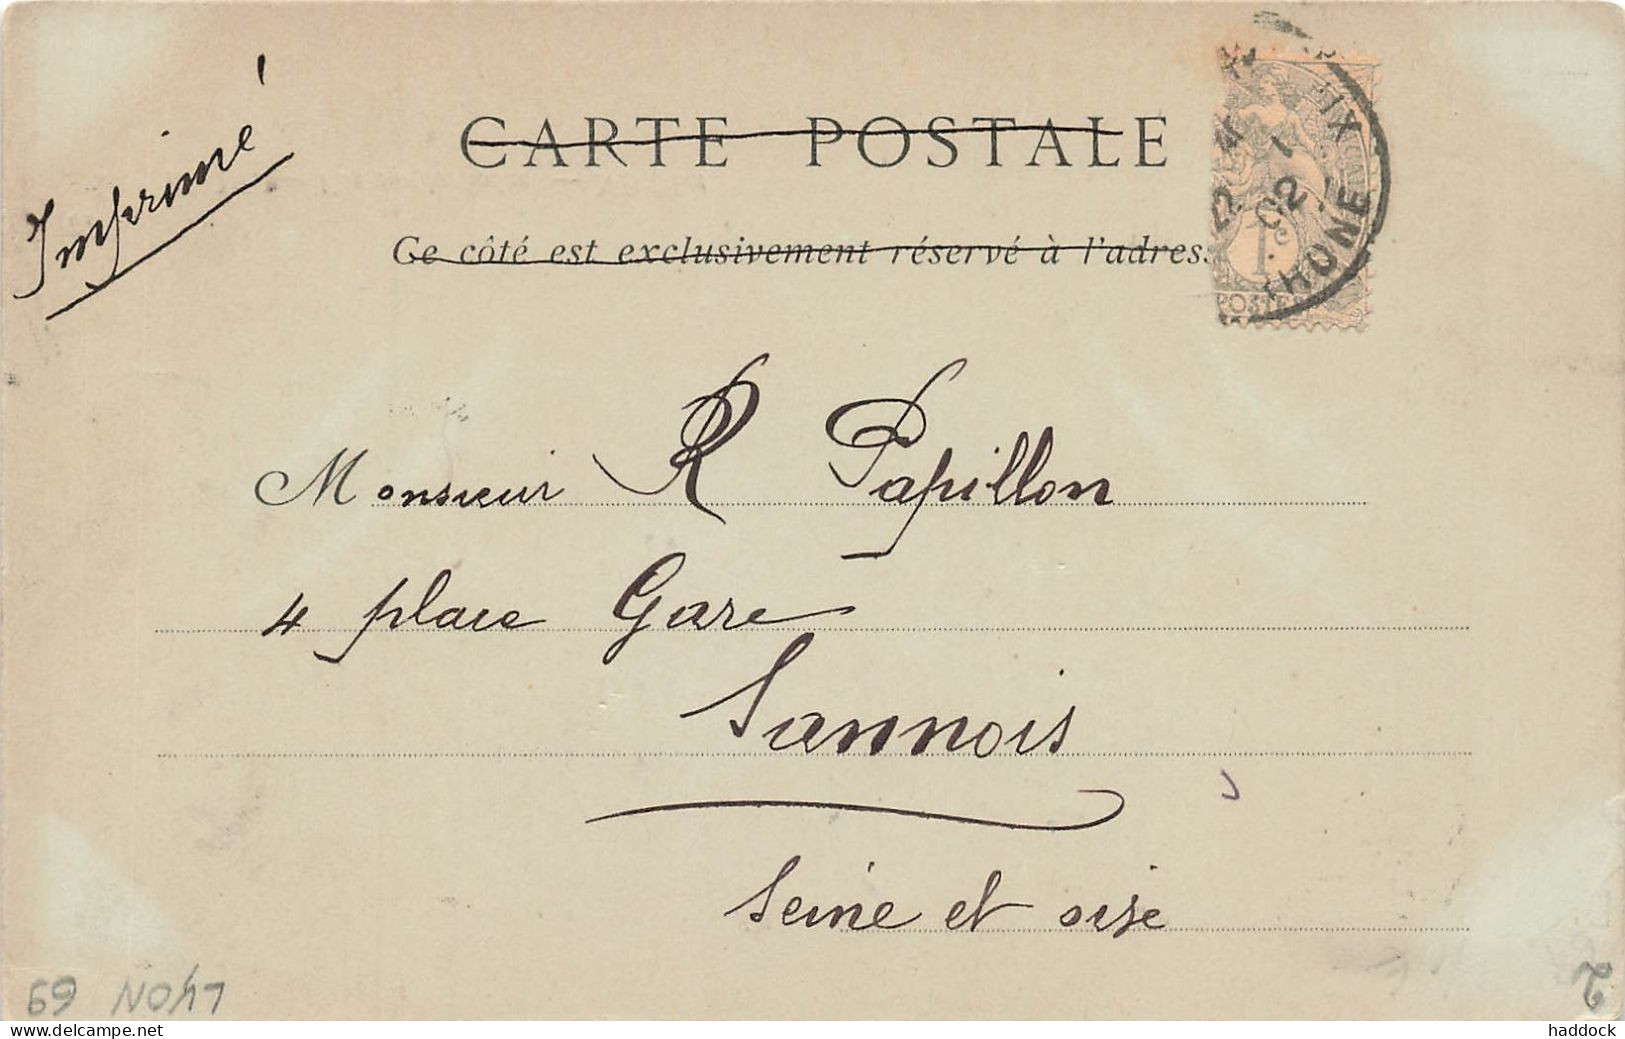 Imprimé
CARTE POSTALE
Ce côté est exclusivement réservé à l'adres
Monsieur R Papillon
4 place Gare
Sannois
Seine et oise
1c
POSTES
02
RHONE
LYON 69
2
haddock